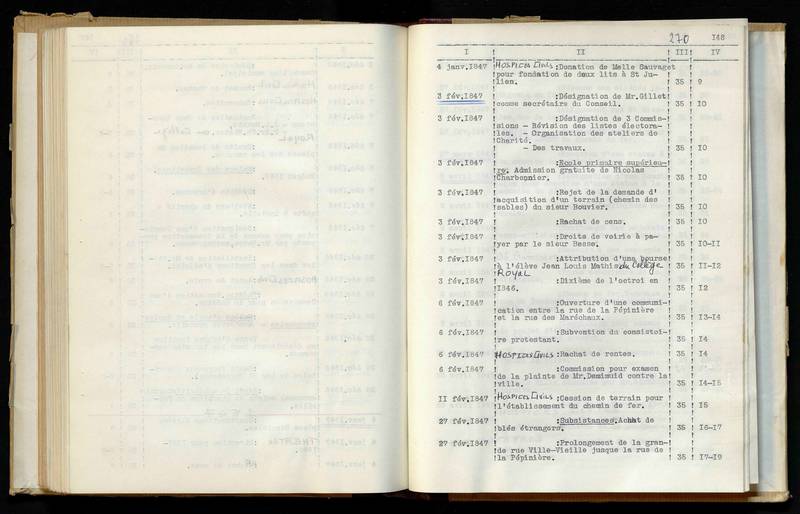 270 I48
I II III IV
4 janv.1847 HOSPICES CIVILS :Donation de Melle Sauvaget
pour fondation de deux lits à St Ju-
lien. 35 9
3 fév.1847 :Désignation de Mr.Gillet
comme secrétaire du Conseil. 35 IO
3 fév.1847 :Désignation de 3 Commis-
sions - Révision des listes électora-
les. - Organisation des ateliers de
Charité.
- Des travaux. 35 IO
3 fév.1847 :Ecole primaire supérieu-
re. Admission gratuite de Nicolas
Charbonnier. 35 IO
3 fév.1847 :Rejet de la demande d'
acquisition d'un terrain (chemin des
sables) du sieur Bouvier. 35 IO
3 fév.1847 :Rachat de cens. 35 IO
3 fév.1847 :Droits de voirie à pa-
yer par le sieur Besse. 35 IO-II
3 fév.1847 :Attribution d'une bourse
à l'élève Jean Louis Mathis du Collège 35 II-I2
ROYAL
3 fév.1847 :Dixième de l'octroi en
I846. 35 I2
6 fév.1847 :Ouverture d'une communi-
cation entre la rue de la Pépinière
et la rue des Maréchaux. 35 I3-I4
6 fév.1847 :Subvention du consistoi-
re protestant. 35 I4
6 fév.1847 HOSPICES CIVILS :Rachat de rentes. 35 I4
6 fév.1847 :Commission pour examen
de la plainte de Mr.Demimuid contre la
ville. 35 I4-I5
II fév.1847 HOSPICES CIVILS :Cession de terrain pour
l'établissement du chemin de fer. 35 I5
27 fév.1847 :Subsistances.Achat de
blés étrangers. 35 I6-I7
27 fév.1847 :Prolongement de la gran-
de rue Ville-Vieille jusque la rue de
la Pépinière. 35 I7-I9